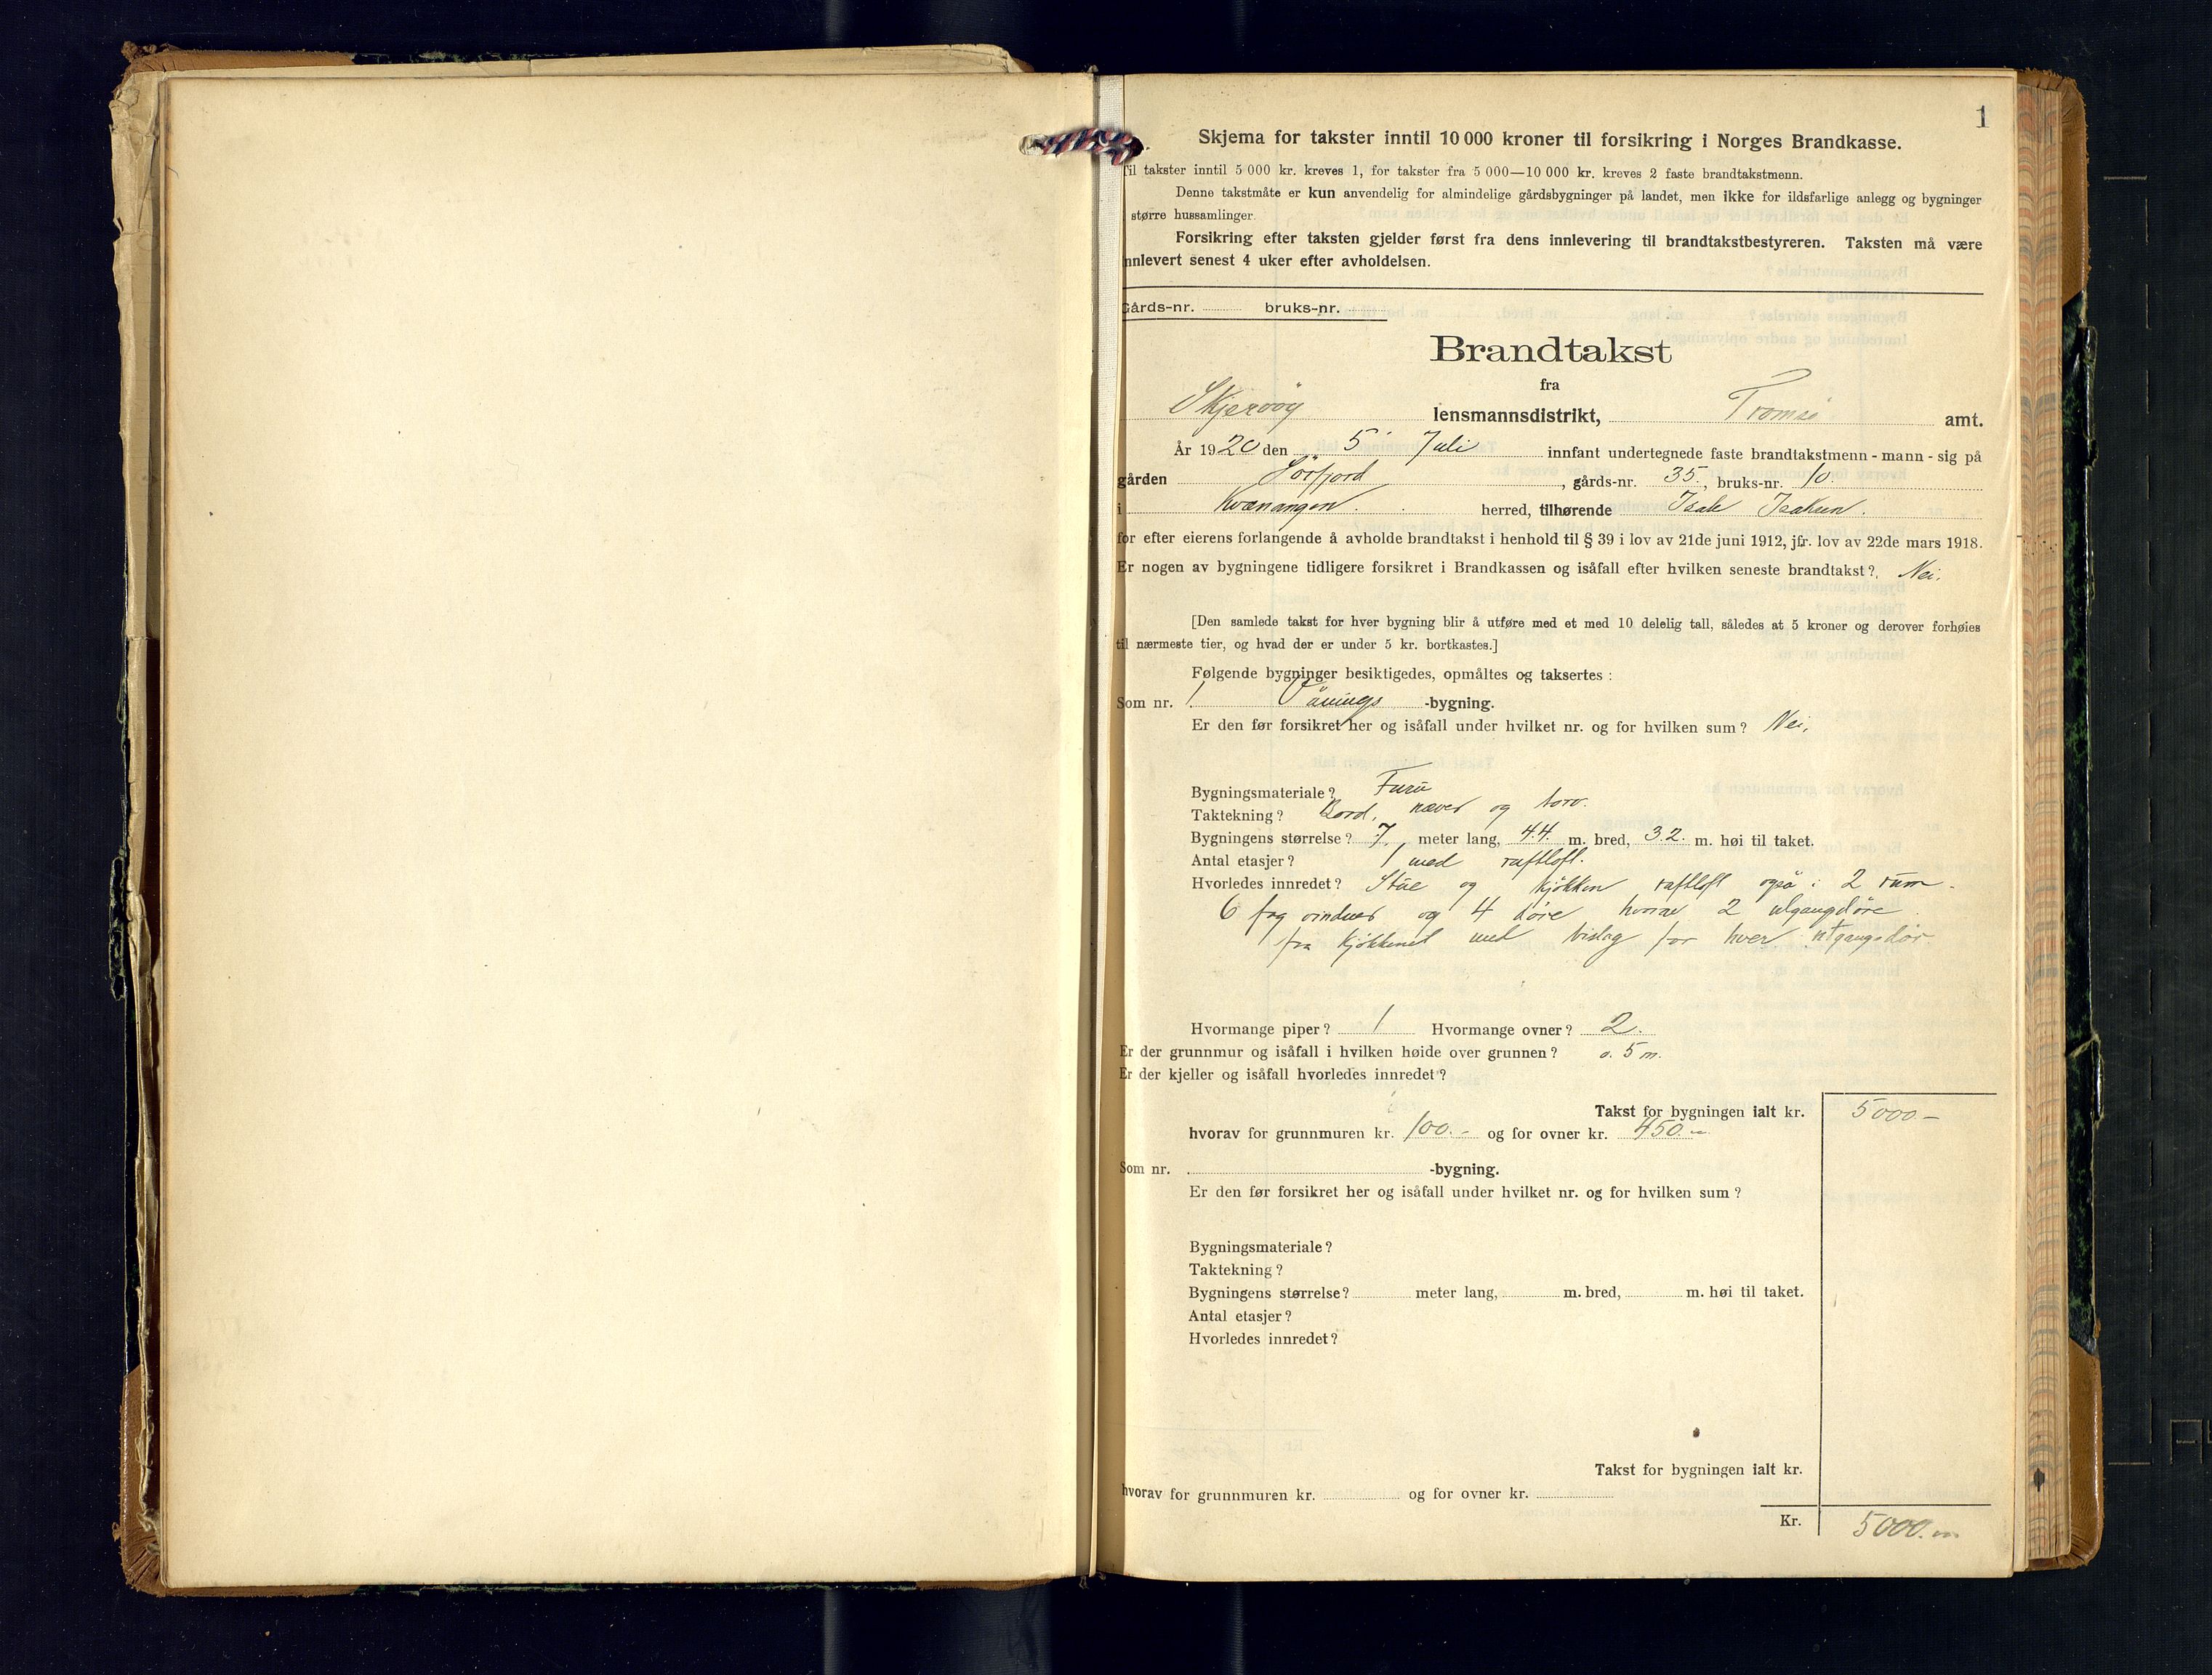 1
Skjema for takster inntil 10 000 kroner til forsikring i Norges Brandkasse.
Til takster inntil 5 000 kr. kreves 1, for takster fra 5 000—10 000 kr. kreves 2 faste brandtakstmenn.
Denne takstmåte er kun anvendelig for almindelige gårdsbygninger på landet, men ikke for ildsfarlige anlegg og bygninger
større hussamlinger.
Forsikring efter taksten gjelder først fra dens innlevering til brandtakstbestyreren. Taksten må være
innlevert senest 4 uker efter avholdelsen.
Gårds-nr. bruks-nr.
Brandtakst
fra
Skjervøy lensmannsdistrikt, Tromsø amt.
År 1920 den 5 Juli innfant undertegnede faste brandtakstmenn - mann - sig på
gården Sörfjord, gårds-nr. 35., bruks-nr. 10.
i Kvænangen. herred, tilhørende Isak Isaksen.
for efter eierens forlangende å avholde brandtakst i henhold til § 39 i lov av 21de juni 1912, jfr. lov av 22de mars 1918.
Er nogen av bygningene tidligere forsikret i Brandkassen og isåfall efter hvilken seneste brandtakst? Nei.
[Den samlede takst for hver bygning blir å utføre med et med 10 delelig tall, således at 5 kroner og derover forhøies
til nærmeste tier, og hvad der er under 5 kr. bortkastes.]
Følgende bygninger besiktigedes, opmåltes og taksertes :
Som nr. 1 Vånings -bygning.
Er den før forsikret her og isåfall under hvilket nr. og for hvilken sum? Nei.
Bygningsmateriale? Furu
Taktekning? Bord, næver og torv.
Bygningens størrelse? 7. meter lang, 4.4. m. bred, 3.2. m. høi til taket.
Antal etasjer? 1 med raftloft.
Hvorledes innredet? Stue og kjökken raftloft også i 2 rum.
6 fag vinduer og 4 döre hvorav 2 utgangsdöre
fra kjökkenet med bislag for hver utgangsdör
Hvormange piper? 1 Hvormange ovner? 2.
Er der grunnmur og isåfall i hvilken høide over grunnen? 0.5 m.
Er der kjeller og isåfall hvorledes innredet?
Takst for bygningen ialt kr. 5000.-
hvorav for grunnmuren kr. 100.- og for ovner kr. 450.-
Som nr. -bygning.
Er den før forsikret her og isåfall under hvilket nr. og for hvilken sum?
Bygningsmateriale?
Taktekning?
Bygningens størrelse? meter lang, m. bred, m. høi til taket.
Antal etasjer?
Hvorledes innredet?
Takst for bygningen ialt kr.
hvorav for grunnmuren kr. og for ovner kr.
Kr. 5000.-